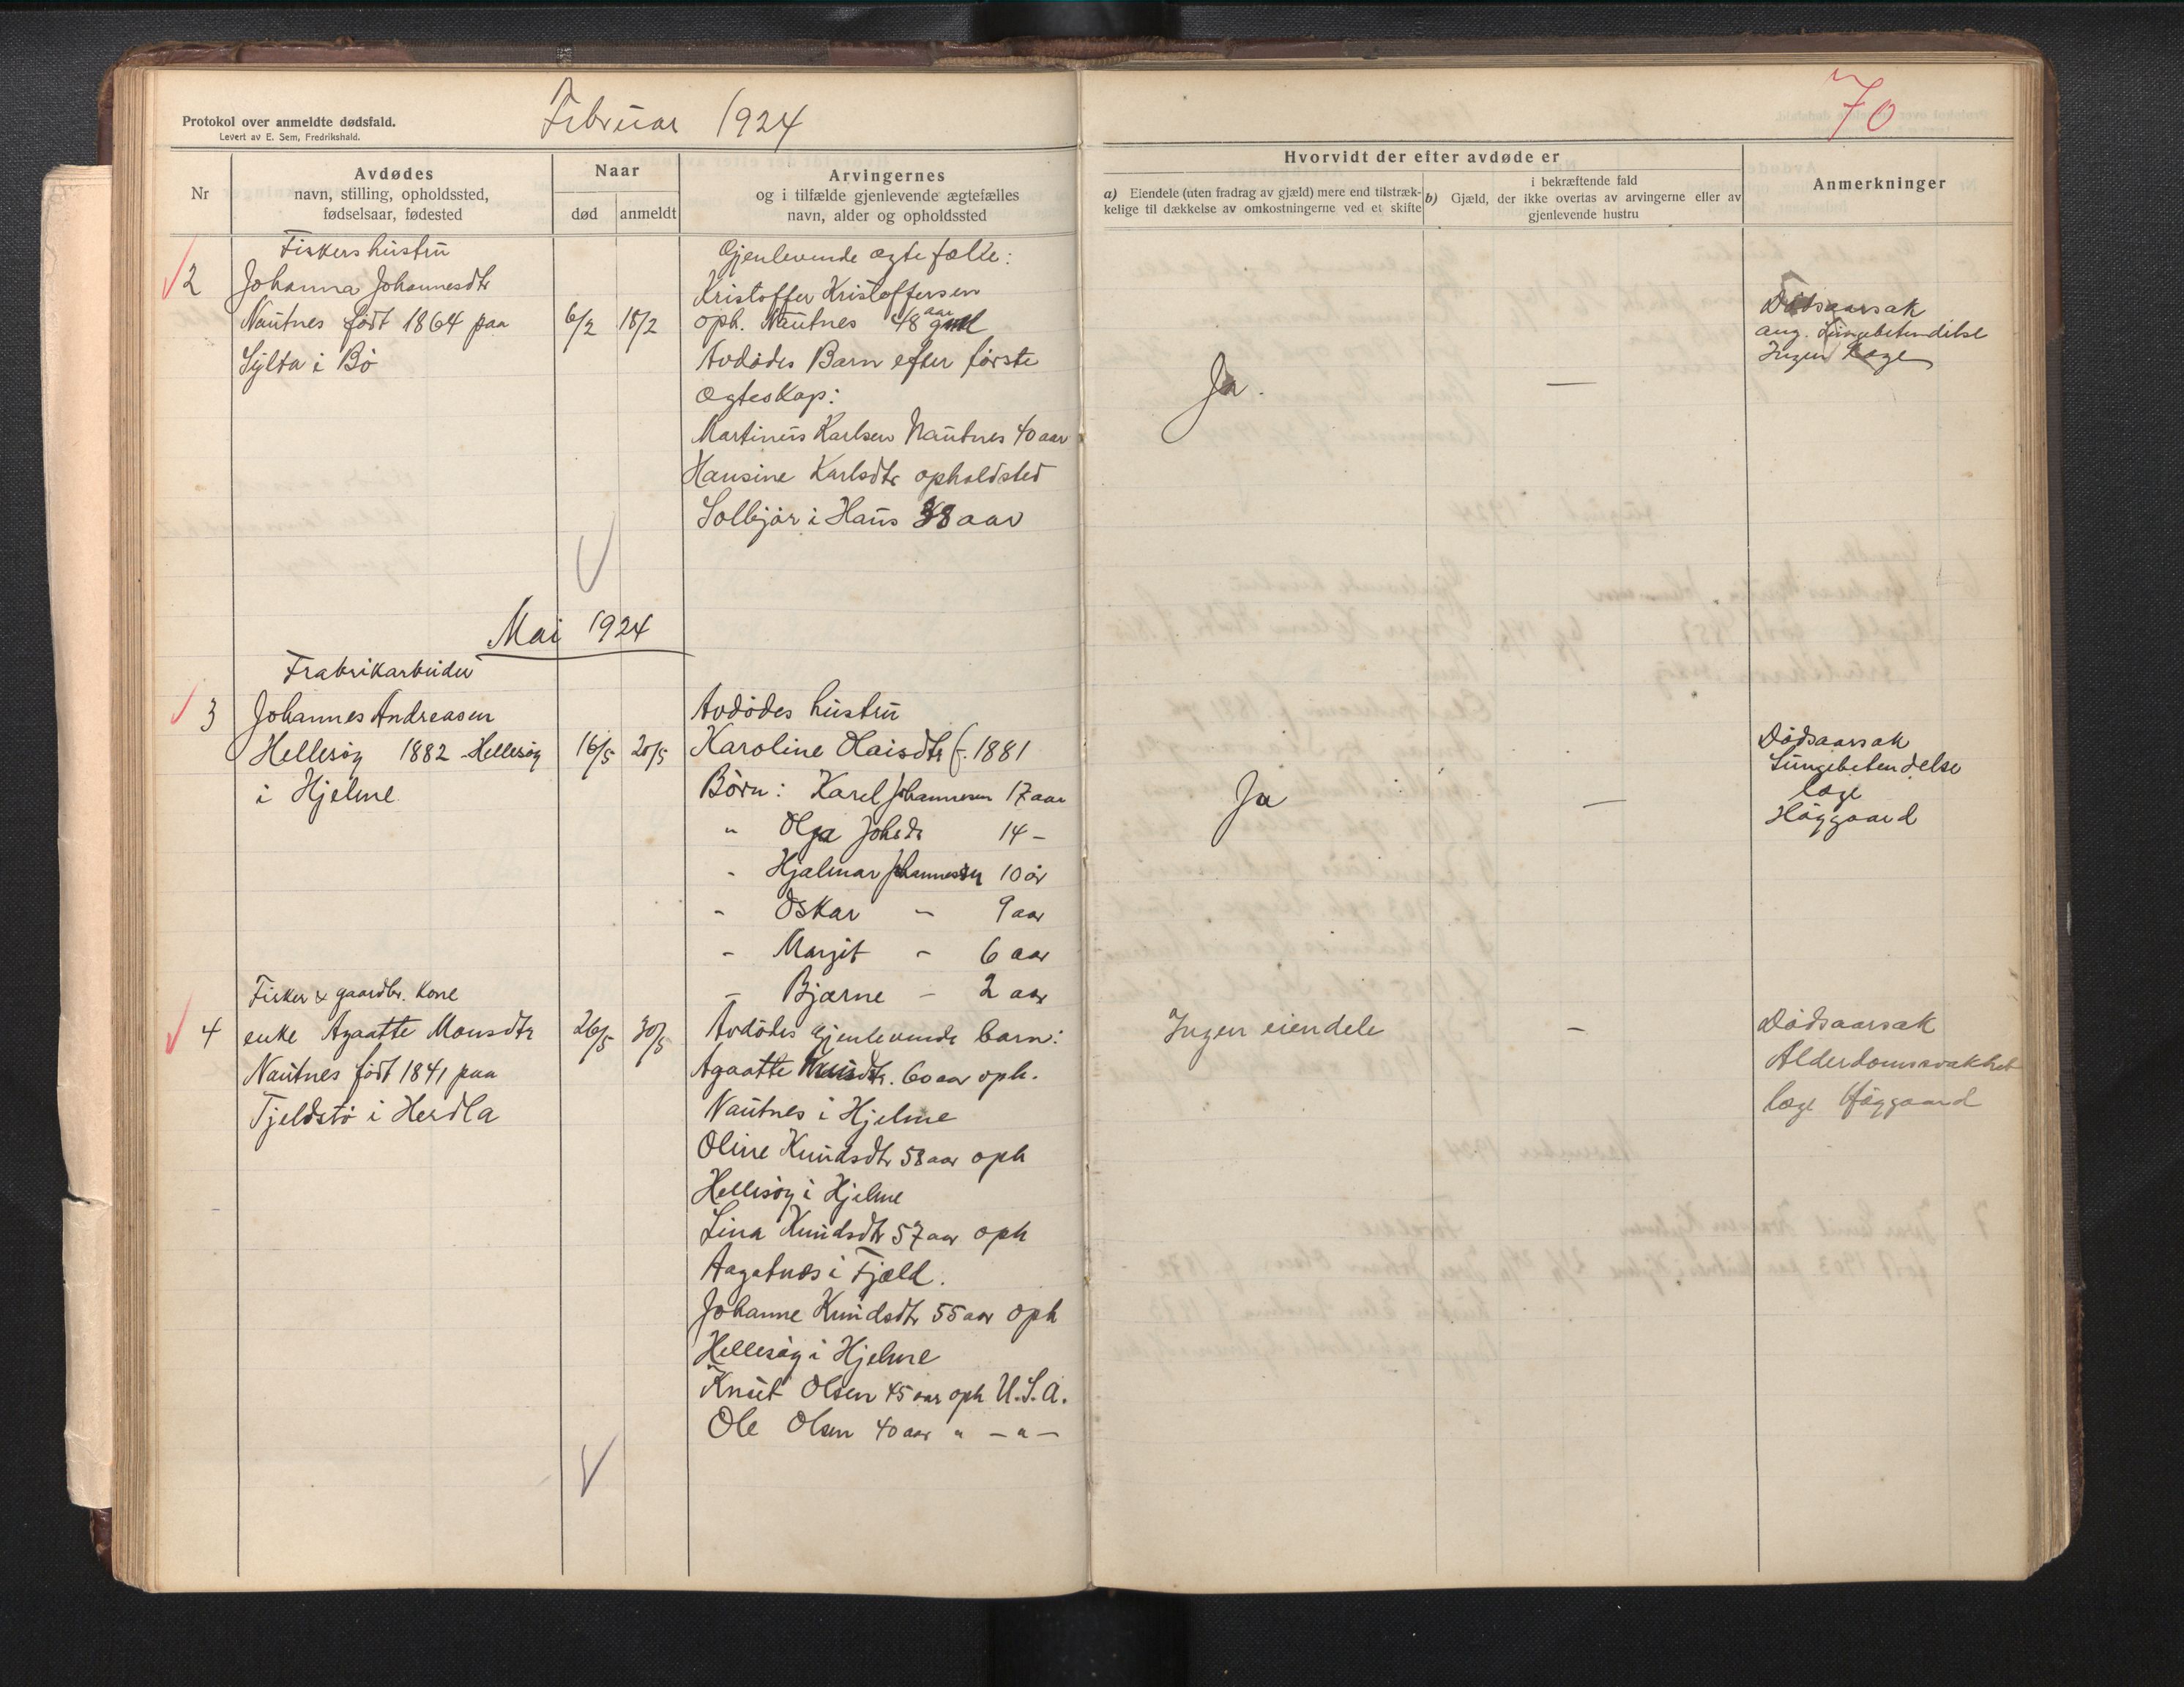 Protokol over anmeldte dødsfald.
Levert av E. Sem, Fredrikshald.
Februar 1924
70
Nr
Avdødes
navn, stilling, opholdssted,
fødselsaar, fødested
Naar
død
anmeldt
Arvingernes
og i tilfælde gjenlevende ægtefælles
navn, alder og opholdssted
Hvorvidt der efter avdøde er
a) Eiendele (uten fradrag av gjæld) mere end tilstræk-
kelige til dækkelse av omkostningerne ved et skifte
i bekræftende fald
b) Gjæld, der ikke overtas av arvingerne eller av
gjenlevende hustru
Anmerkninger
2
Fiskers hustru
Johanna Johannesdtr
Nautnes født 1864 paa
Sylta i Bø
6/2
18/2
Gjenlevende ægtefælle:
Kristoffer Kristoffersen
oph. Nautnes 48 aar
Avdødes Barn efter første
Ægteskap:
Martinus Karlsen Nautnes 40 aar
Hansine Karlsdtr opholdsted
Solbjør i Haus 38 aar
Ja.
—
Dødsaarsak
ang. Lungebetendelse
Ingen læge
Mai 1924
3
Frabrikarbeider
Johannes Andreasen
Hellesøy 1882 Hellesøy
i Hjelme
16/5
20/5
Avdødes hustru
Karoline Olaisdtr f. 1881
Børn: Karel Johannesen 17 aar
" Olga Johsdr 14 —
- Hjalmar Johannessen 10 år
- Oskar — 9 aar
- Margit — 6 aar
- Bjarne — 2 aar
Ja
—
Dødsaarsak
Lungebetendelse
læge
Høggaard
4
Fisker & gaardbr. Kone
enke Agaatte Monsdtr
Nautnes født 1841 paa
Tjeldstø i Herdla
26/5
30/5
Avdødes gjenlevende barn:
Agaatte Knudsdtr. 60 aar oph.
Nautnes i Hjelme
Oline Knudsdtr 58 aar oph
Hellesøy i Hjelme
Lina Knudsdtr 57 aar oph
Aagatnes i Fjæld.
Johanne Knudsdtr 55 aar oph
Hellesøy i Hjelme
Knut Olsen 45 aar oph U.S.A.
Ole Olsen 40 aar " — " —
Ingen eiendele
—
Dødsaarsak
Alderdomsvakhet
læge Høggaard